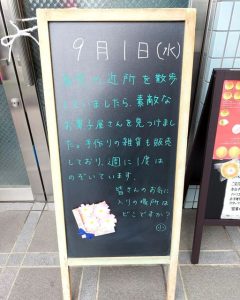 9月1日(水)
近所を散歩
していましたら、素敵な
お菓子屋さんを見つけまし
た。手作りの雑貨も販売
しており、週に1度は
のぞいています。
皆さんのお気に
入りの場所は
どこですか?